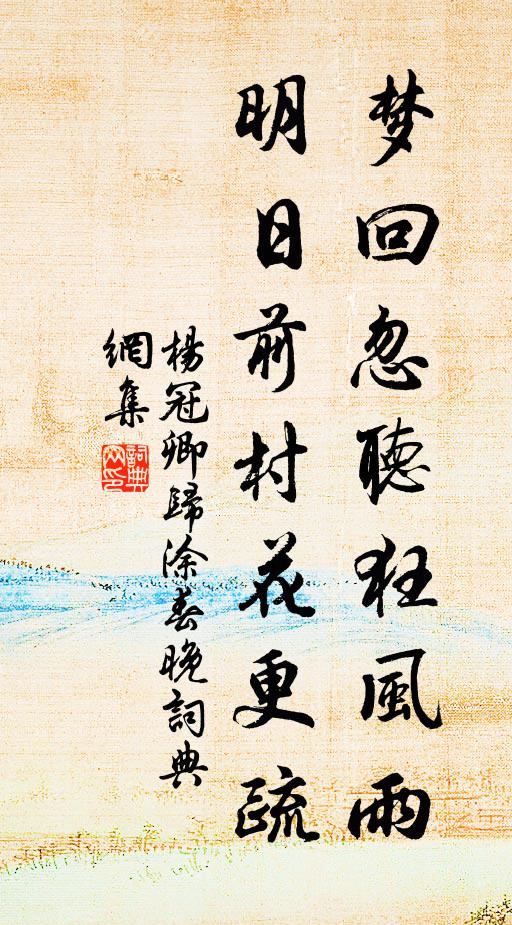 梦回忽聽狂風雨
明日前村花更疏
楊冠卿歸涂春晚詞典
網集
詞典
网印